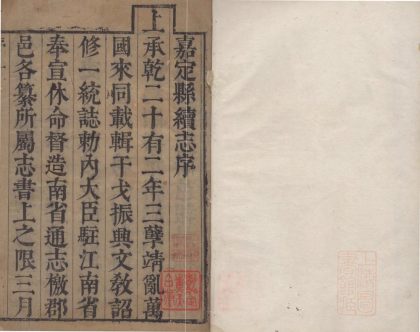 嘉定縣續志序
上承乾二十有二年三孽靖亂萬
國來同載輯干戈振興文教詔
修一統誌勅內大臣駐江南省
奉宣休命督造南省通志檄郡
邑各纂所屬志書上之限三月